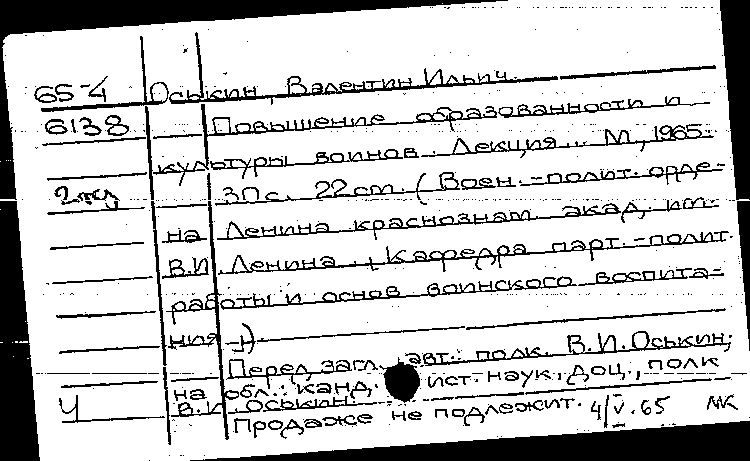 65-4 Оськин, Валентин Ильич.
6138 Повышение образованности и
культуры воинов. Лекция... М., 1965.
2 экз 30 с. 22 см. (Воен.-полит. орде-
на Ленина краснознам. акад. им.
В.И. Ленина. Кафедра парт.-полит.
работы и основ воинского воспита-
ния.)
Перед загл. авт.: полк. В.И. Оськин;
на обл.: канд. ист. наук, доц., полк
Ч В.И. Оськин.
Продаже не подлежит. 4/V.65 МК